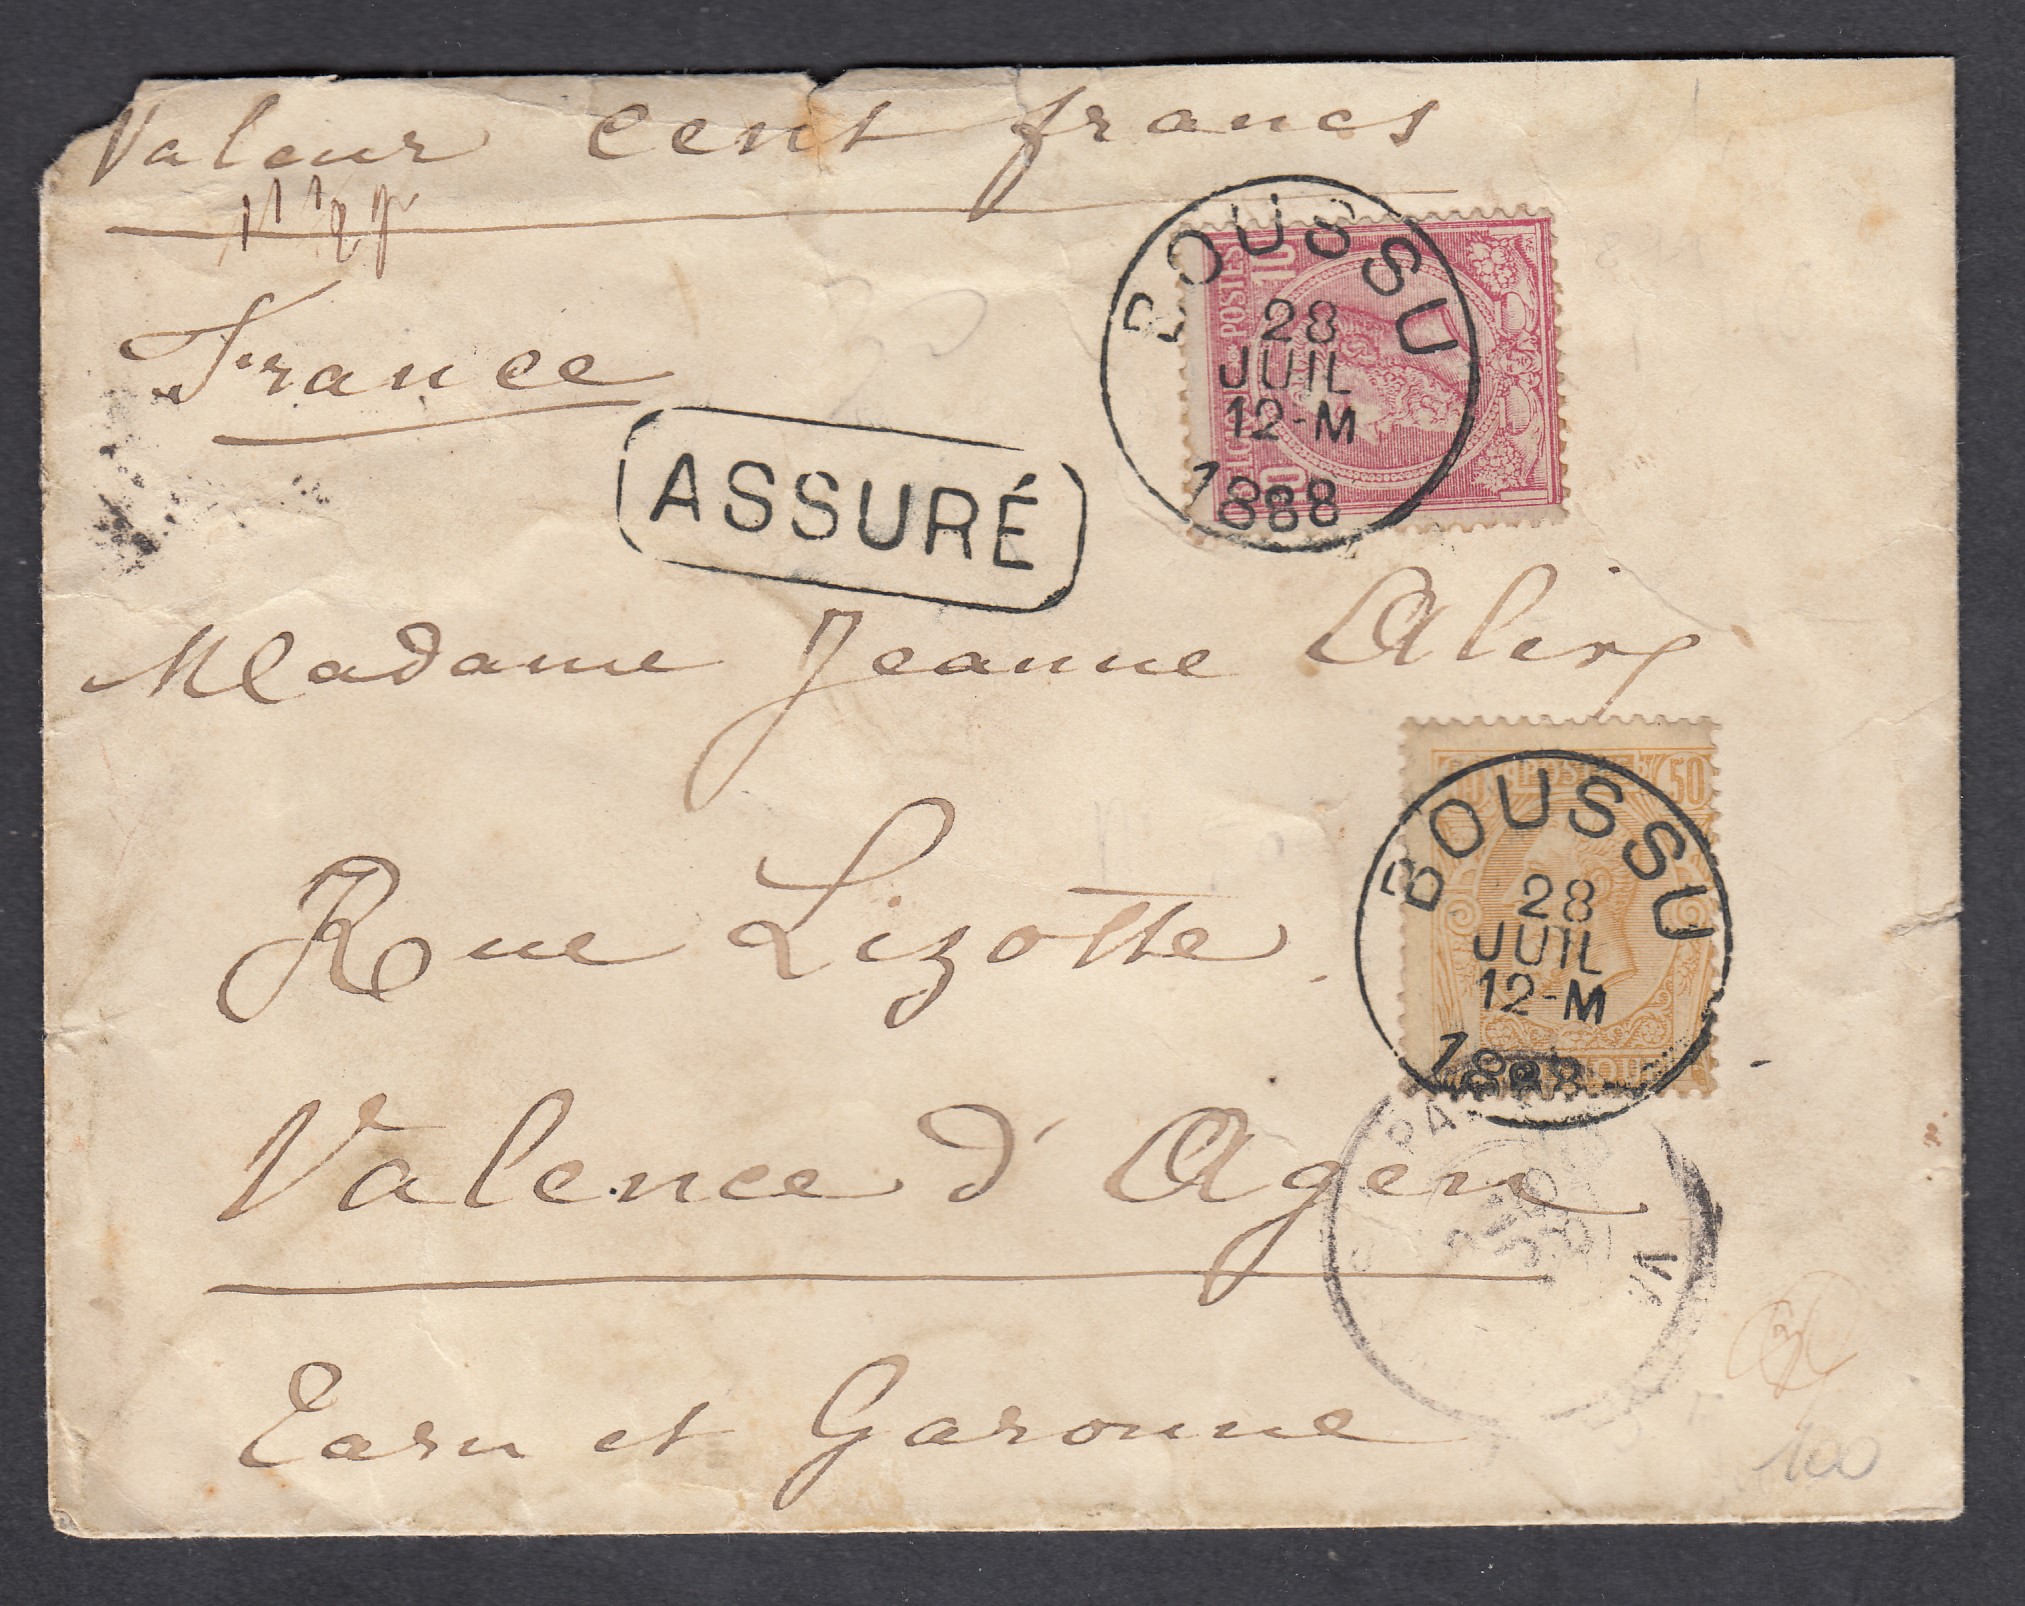 Valeur Cent francs
France
ASSURÉ
BOUSSU
28
JUIL
12-M
1888
POSTES 10
10
Madame Jeanne Alix
50 POSTES 50
BOUSSU
28
JUIL
12-M
1888
Rue Lizotte
Valence d'Agen
Tarn et Garonne
100